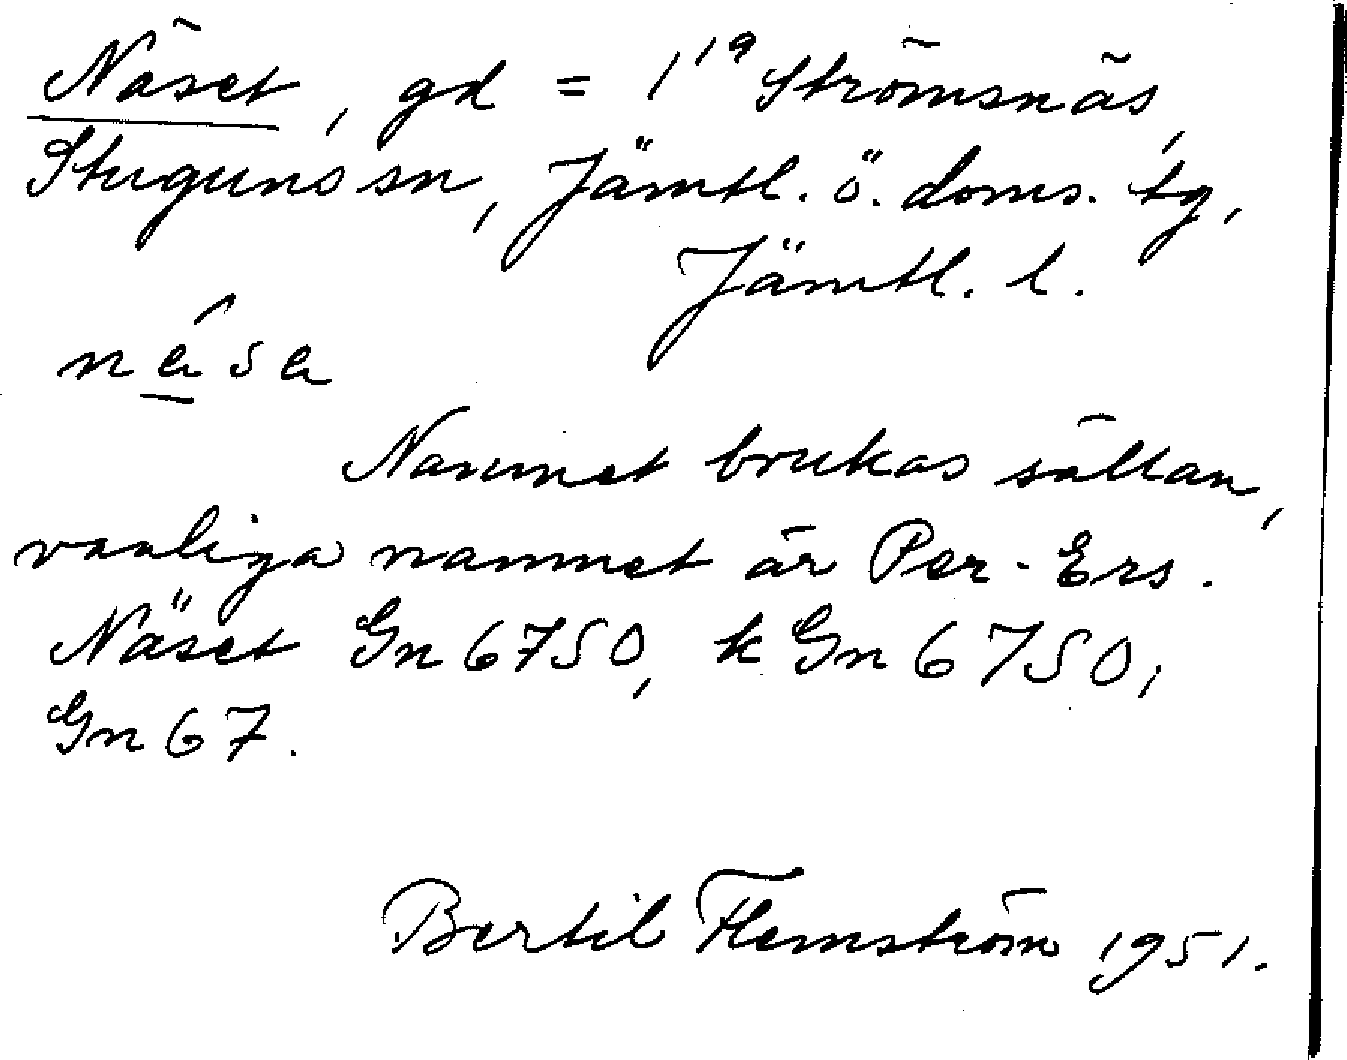 Näset, gd = 1¹⁹ Strömsnäs,
Stuguns sn, Jämtl. ö. doms. tg,
Jämtl. l.
Namnet brukas sällan,
vanliga namnet är Per-Ers.
Näset Gn 6750, k Gn 6750,
Gn 67.
Bertil Flemström 1951.